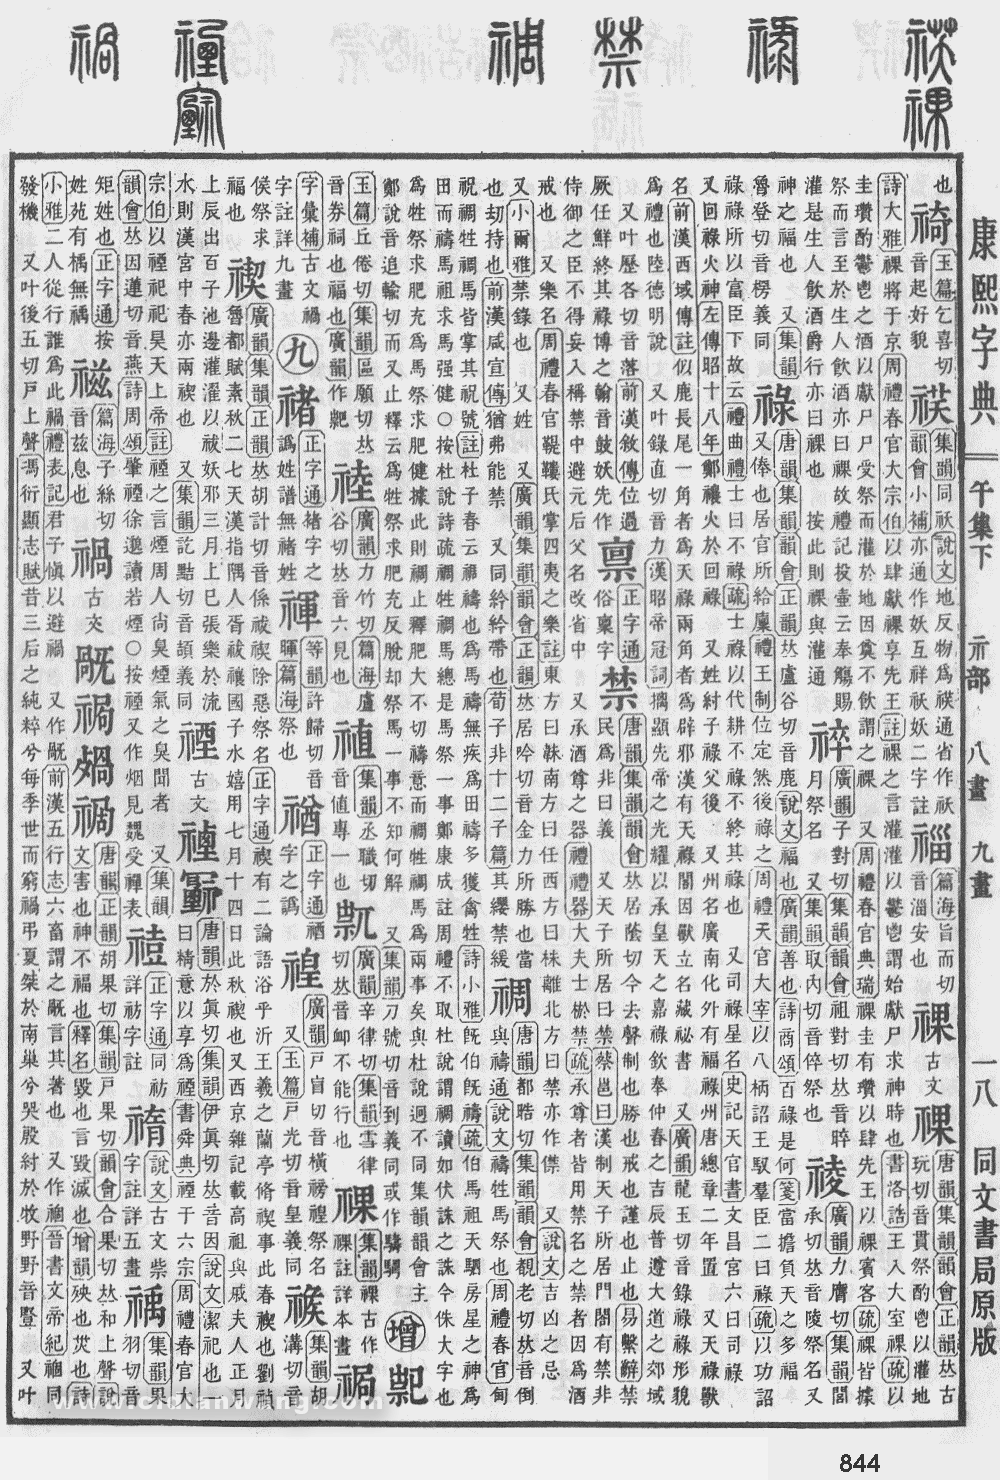 康熙字典 午集下 示部 八畫 九畫 一一八 同文書局原版
也 䄎 玉篇乞喜切音起好貌 䄏 集韻同祅說文地反物爲䄏通省作祅韻會小補亦通作妖互祥祅妖二字註 篇海旨而切音淄安也 祼 古文 祼 唐韻集韻韻會正韻𠀤古玩切音貫祭酌鬯以灌地
詩大雅祼將于京周禮春官大宗伯以肆獻祼享先王註祼之言灌灌以鬱鬯謂始獻尸求神時也書洛誥王入大室祼疏以
圭瓚酌鬱鬯之酒以獻尸尸受祭而灌於地因奠不飮謂之祼 又周禮春官典瑞祼圭有瓚以肆先王以祼賓客疏祼皆據
祭而言至於生人飮酒亦曰祼故禮記投壺云奉觴賜
灌是生人飮酒爵行亦曰祼也 按此則祼與灌通 䘹 廣韻子對切集韻韻會祖對切𠀤音晬月祭名 又集韻取內切音倅祭也 祾 廣韻力膺切集韻閭承切𠀤音陵祭名又
神之福也 又集韻
魯登切音楞義同 祿 唐韻集韻韻會正韻𠀤盧谷切音鹿說文福也廣韻善也詩商頌百祿是何箋當擔負天之多福 又俸也居官所給廩禮王制位定然後祿之周禮天官大宰以八柄詔王馭羣臣二曰祿疏以功詔
祿祿所以富臣下故云禮曲禮士曰不祿疏士祿以代耕不祿不終其祿也 又司祿星名史記天官書文昌宮六曰司祿
又回祿火神左傳昭十八年鄭禳火於回祿 又姓紂子祿父後 又州名廣南化外有福祿州唐總章二年置 又天祿獸
名前漢西域傳註似鹿長尾一角者爲天祿兩角者爲辟邪漢有天祿閣因獸立名藏祕書 又廣韻龍玉切音錄祿祿形貌
爲禮也陸德明說 又叶錄直切音力漢昭帝冠詞摛顯先帝之光耀以承皇天之嘉祿欽奉仲春之吉辰普遵大道之郊域
又叶歷各切音落前漢敘傳位過
厥任鮮終其祿博之翰音鼓妖先作 禀 正字通俗稟字 禁 唐韻集韻韻會𠀤居蔭切今去聲制也勝也戒也謹也止也易繫辭禁民爲非曰義 又天子所居曰禁蔡邕曰漢制天子所居門閤有禁非
侍御之臣不得妄入稱禁中避元后父名改省中 又承酒尊之器禮禮器大夫士棜禁疏承尊者皆用禁名之禁者因爲酒
戒也 又樂名周禮春官鞮鞻氏掌四夷之樂註東方曰韎南方曰任西方曰株離北方曰禁亦作僸 又說文吉凶之忌
又小爾雅禁錄也 又姓 又廣韻集韻韻會正韻𠀤居吟切音金力所勝也當
也刧持也前漢咸宣傳猶弗能禁 又同紟紟帶也荀子非十二子篇其纓禁緩 禂 唐韻都晧切集韻韻會覩老切𠀤音倒與禱通說文禱牲馬祭也周禮春官甸
祝禂牲禂馬皆掌其祝號註杜子春云禂禱也爲馬禱無疾爲田禱多獲禽牲詩小雅旣伯旣禱疏伯馬祖天駟房星之神爲
田而禱馬祖求馬强健○按杜說詩疏禂牲禂馬總是馬祭一事鄭康成註周禮不取杜說謂禂讀如伏誅之誅今侏大字也
爲牲祭求肥充爲馬祭求肥健據此則禂止釋肥大不切禱意而禂牲禂馬爲兩事矣與杜說迥不同集韻韻會主
鄭說音追輸切而又止釋云爲牲祭求肥充反脫却祭馬一事不知何解 又集韻刀號切音到義同或作䮻騆 增 䄫
玉篇丘倦切集韻區願切𠀤音券祠也福也廣韻作䄐 䄎 廣韻力竹切篇海盧谷切𠀤音六見也 䄠 集韻丞職切音値專一也 䄔 廣韻辛律切集韻雪律切𠀤音䘏不能行也 祼 集韻祼古作祼註詳本畫 禍
字彙補古文禍字註詳九畫 九 禇 正字通禇字之譌姓譜無禇姓 禈 等韻許歸切音暉篇海祭也 䄓 正字通䄓字之譌 䄓 廣韻戸盲切音橫禜䄓祭名 又玉篇戸光切音皇義同 䄛 集韻胡溝切音
侯祭求福也 禊 廣韻集韻正韻𠀤胡計切音係祓禊除惡祭名正字通禊有二論語浴乎沂王羲之蘭亭脩禊事此春禊也劉禎魯都賦素秋二七天漢指隅人胥祓禳國子水嬉用七月十四日此秋禊也又西京雜記載高祖與戚夫人正月
上辰出百子池邊灌濯以祓妖邪三月上巳張樂於流
水則漢宮中春亦兩禊也 又集韻訖黠切音頡義同 禋 古文 𥜒 𡪀 唐韻於眞切集韻伊眞切𠀤音因說文潔祀也一曰精意以享爲禋書舜典禋于六宗周禮春官大
宗伯以禋祀祀昊天上帝註禋之言煙周人尙臭煙氣之臭聞者 又集韻
韻會𠀤因蓮切音燕詩周頌肇禋徐邈讀若煙○按禋又作烟見魏受禪表 䄘 正字通同祊詳祊字註 䄟 說文古文祡字註詳五畫 䄔 集韻果羽切音
矩姓也正字通按姓苑有楀無䄔 禌 篇海子絲切音兹息也 禍 古文 𣨋 𥚖 𣨶 𥛗 唐韻正韻胡果切集韻戸果切韻會合果切𠀤和上聲說文害也神不福也釋名毀也言毀滅也增韻殃也災也詩
小雅二人從行誰爲此禍禮表記君子愼以避禍 又作𣨋前漢五行志六畜謂之𣨋言其著也 又作𥚖晉書文帝紀𥚖同
發機 又叶後五切戸上聲馮衍顯志賦昔三后之純粹兮每季世而窮禍弔夏桀於南巢兮哭殷紂於牧野野音豎 又叶
844